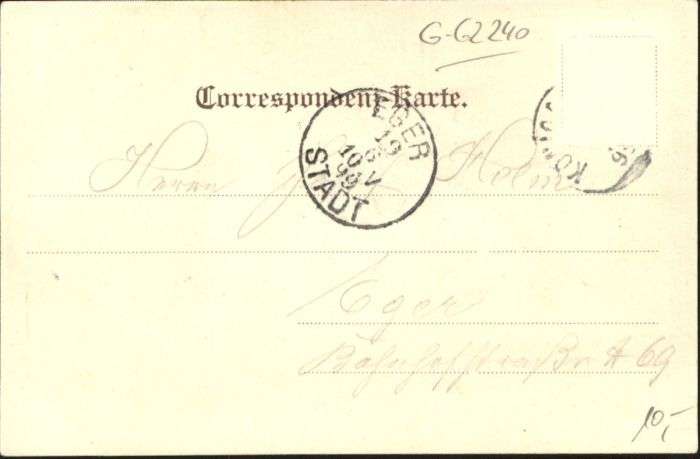 G-G2240
Correspondenz-Karte.
EGER
19
10 V
99
STADT
Herrn J. Holm
Eger
Bahnhofstraße № 69
10,-